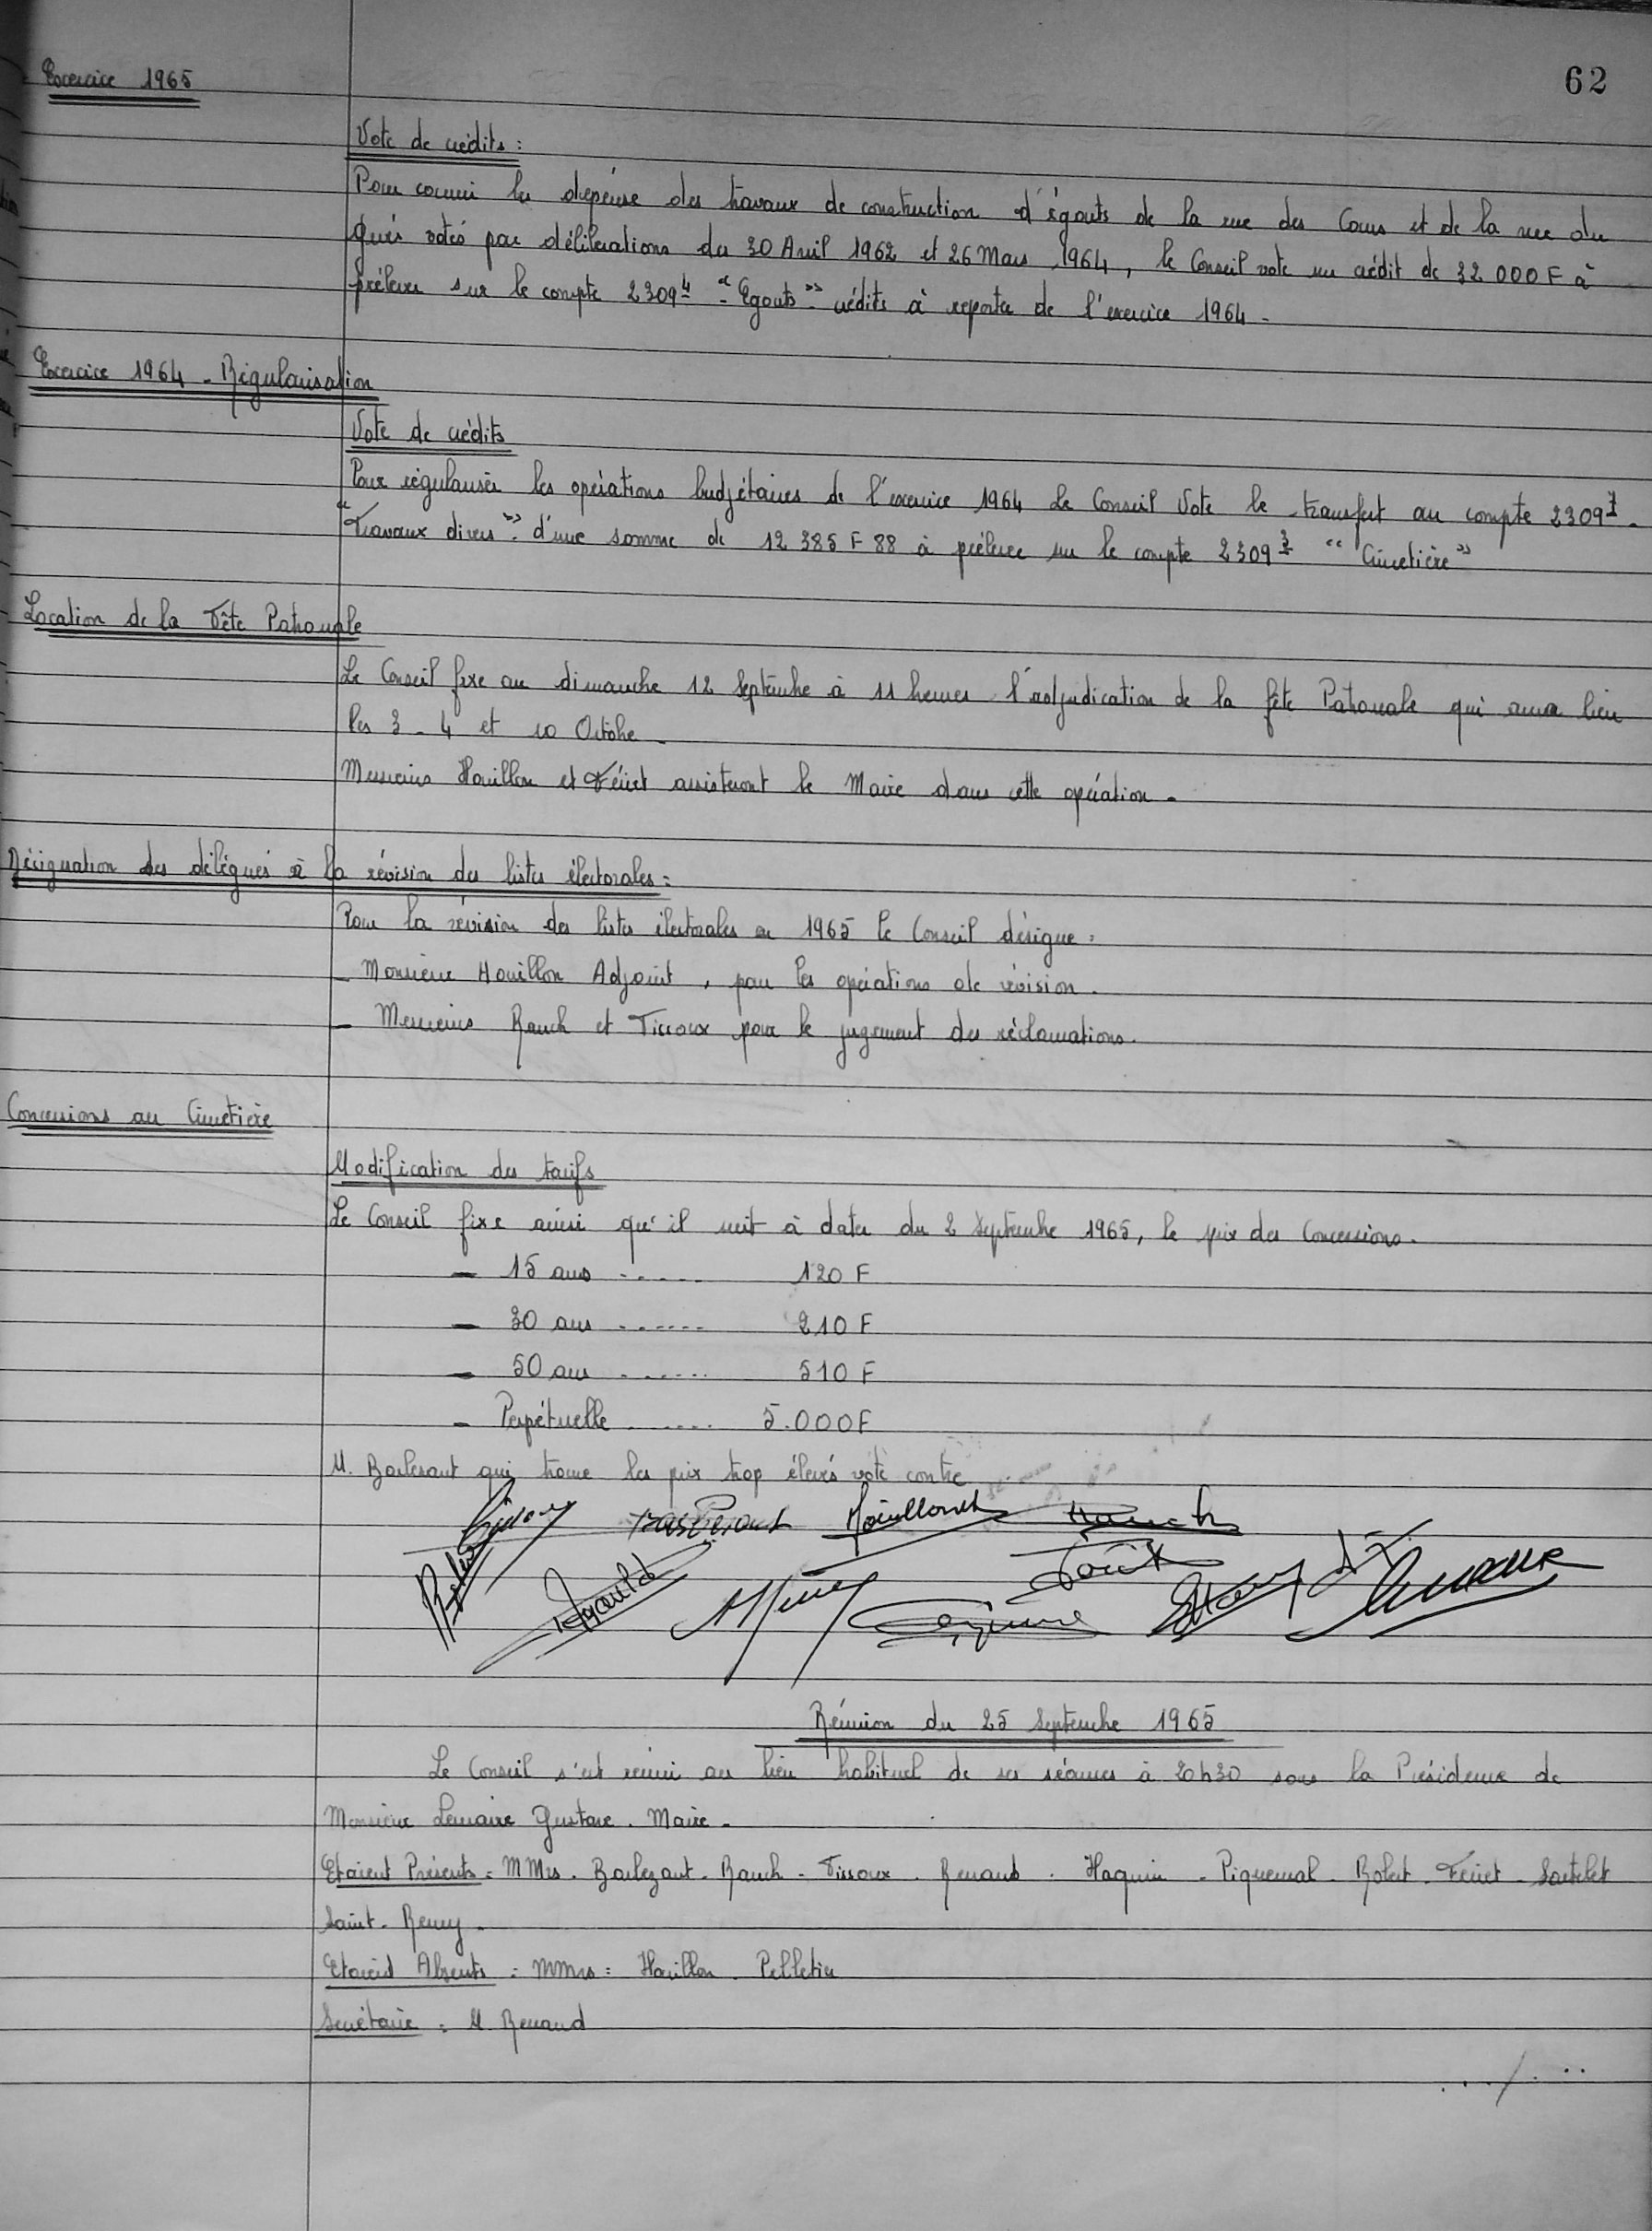 62
Exercice 1965
Vote de crédits :
Pour couvrir les dépense des travaux de construction d'égouts de la rue des Cours et de la rue du
Gués votés par délibérations du 30 Avril 1962 et 26 Mars 1964, le Conseil vote un crédit de 32 000 F à
prélever sur le compte 2309 4 "Egouts" crédits à reporter de l'exercice 1964 -
Exercice 1964 - Régularisation
Vote de crédits
Pour régulariser les opérations budgétaires de l'exercice 1964 le Conseil Vote le transfert au compte 2309 1 -
"Travaux divers" d'une somme de 12 385 F 88 à prélever sur le compte 2309 3 "Cimetière"
Location de la Fête Patronale
Le Conseil fixe au dimanche 12 Septembre à 11 heures l'adjudication de la fête Patronale qui aura lieu
les 3 - 4 et 10 Octobre -
Messieurs Houillon et Fériet assisteront le Maire dans cette opération -
Désignation des délégués à la révision des listes électorales :
Pour la révision des listes électorales en 1965 le Conseil désigne :
- Monsieur Houillon Adjoint, pour les opérations de révision.
- Messieurs Rauch et Tissoux pour le jugement des réclamations.
Concessions au Cimetière
Modification des tarifs
Le Conseil fixe ainsi qu'il suit à dater du 2 Septembre 1965, le prix des Concessions.
- 15 ans ...... 120 F
- 30 ans ....... 210 F
- 50 ans ....... 510 F
- Perpétuelle ....... 5.000 F
M. Barlesaut qui trouve les prix trop élevés vote contre
Houillon Rauch
Réunion du 25 Septembre 1965
Le Conseil s'est réuni au lieu habituel de ses séances à 20h30 sous la Présidence de
Monsieur Lemaire Gustave. Maire -
Etaient Présents : MMrs. Barlezaut - Rauch - Tissoux . Renaud . Haquin - Piquemal - Robert - Fériet - Sautelet
Saint-Remy -
Etaient Absents : MMrs : Houillon . Pelletier
Secrétaire : M. Renaud
.../...